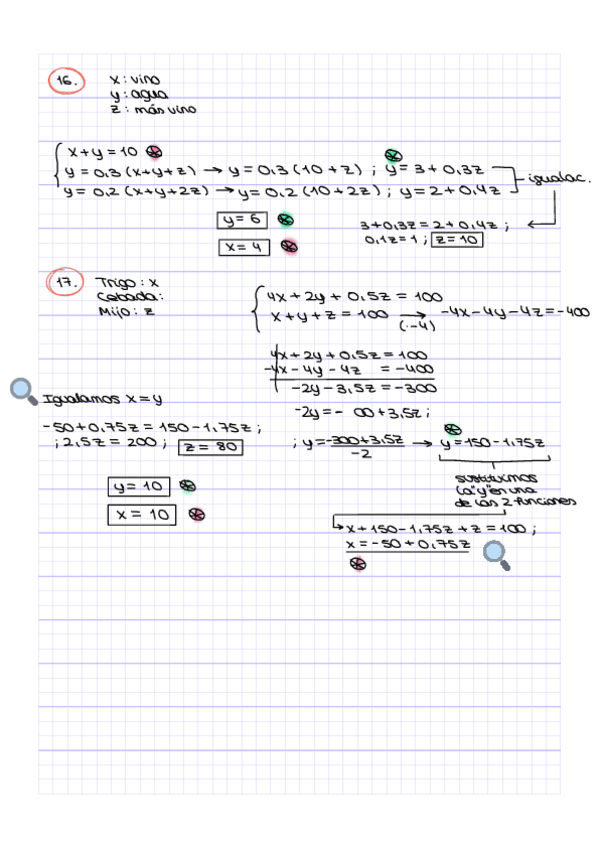 16.
x : vino
y : agua
z : más vino
x + y = 10
y = 0,3 (x+y+z) → y = 0,3 (10 + z) ; y = 3 + 0,3z
y = 0,2 (x+y+2z) → y = 0,2 (10 + 2z) ; y = 2 + 0,4z
igualac.
3 + 0,3z = 2 + 0,4z ;
0,1z = 1 ; z = 10
y = 6
x = 4
17.
Trigo : x
Cebada :
Mijo : z
4x + 2y + 0,5z = 100
x + y + z = 100 → -4x - 4y - 4z = -400
(·-4)
4x + 2y + 0,5z = 100
-4x - 4y - 4z = -400
-2y - 3,5z = -300
-2y = - 00 + 3,5z ;
; y = -300+3,5z / -2 → y = 150 - 1,75z
sustituimos
la "y" en una
de las 2 funciones
x + 150 - 1,75z + z = 100 ;
x = -50 + 0,75z
Igualamos x = y
-50 + 0,75z = 150 - 1,75z ;
; 2,5z = 200 ; z = 80
y = 10
x = 10